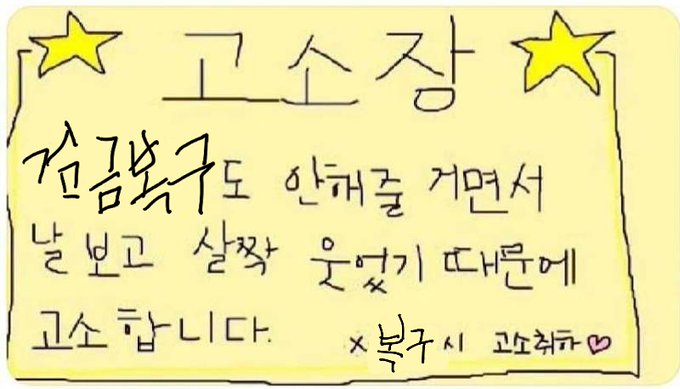 고소장
검금복구도 안해줄 거면서
날보고 살짝 웃었기 때문에
고소합니다. x복구시 고소취하♡